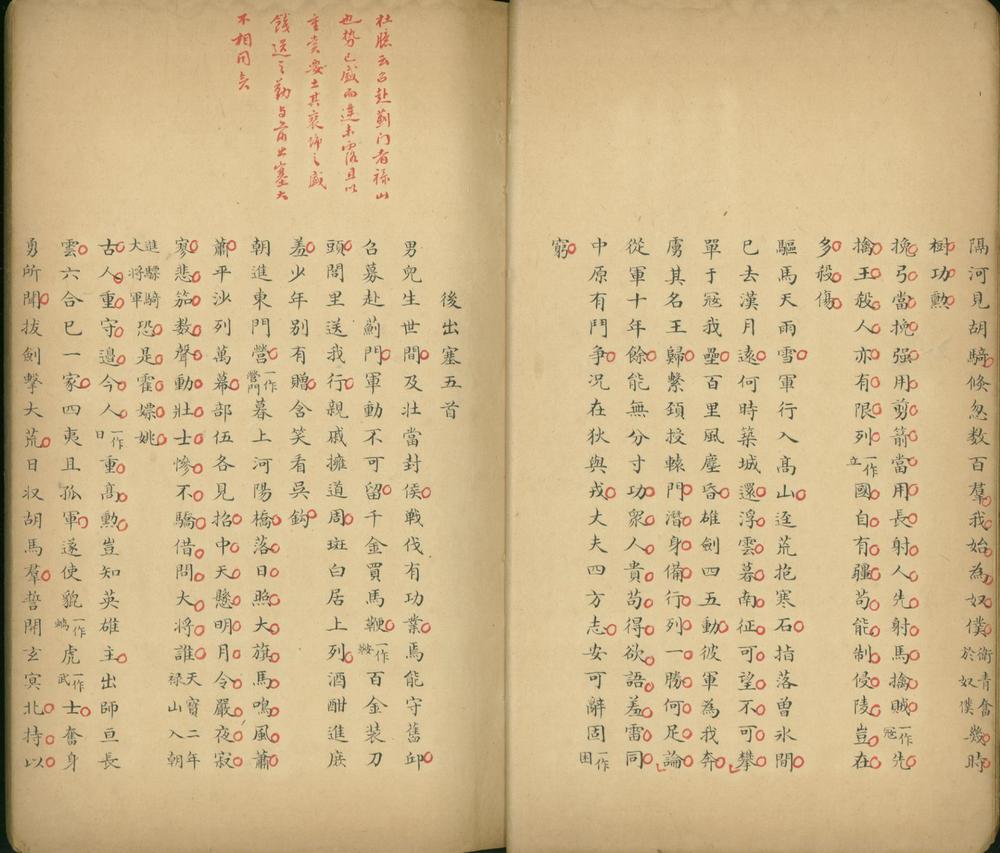 隔河見胡騎倐忽数百羣我始為奴僕衛青奮於奴僕幾時
樹功勲
挽弓當挽强用剪箭當用長射人先射馬擒賊一作冦先
擒王殺人亦有限列一作立國自有疆苟能制侵陵豈在
多殺傷
驅馬天雨雪軍行入髙山逕荒抱寒石指落曽氷間
已去漢月逺何時築城還浮雲暮南征可望不可攀
單于冦我壘百里風塵昏雄劍四五動彼軍為我奔
虜其名王歸繫頚授轅門潛身備行列一勝何足論
從軍十年餘能無分寸功衆人貴苟得欲語羞雷同
中原有鬥爭况在狄與戎大夫四方志安可辭固一作困
窮
後出塞五首
男兒生世間及壯當封侯戰伐有功業焉能守舊邱
召募赴薊門軍動不可留千金買馬鞭一作鞍百金装刀
頭閭里送我行親戚擁道周斑白居上列酒酣進庶
羞少年别有贈含笑看吳鈎
朝進東門營一作營門暮上河陽橋落日照大旗馬鳴風蕭
蕭平沙列萬幕部伍各見招中天懸明月令嚴夜寂
寥悲笳数聲動壯士慘不驕借問大将誰天寶二年禄山入朝
進驃騎大将軍恐是霍嫖姚
古人重守邉今人一作日重髙勲豈知英雄主出師亘長
雲六合已一家四夷且孤軍遂使貔一作䝙虎一作武士奮身
勇所聞拔劍擊大荒日収胡馬羣誓開玄冥北持以
杜臆云召赴薊门者禄山
也势已盛而逆未露且以
重赏要士其裒师之盛
餞送之勤与前出塞大
不相同矣